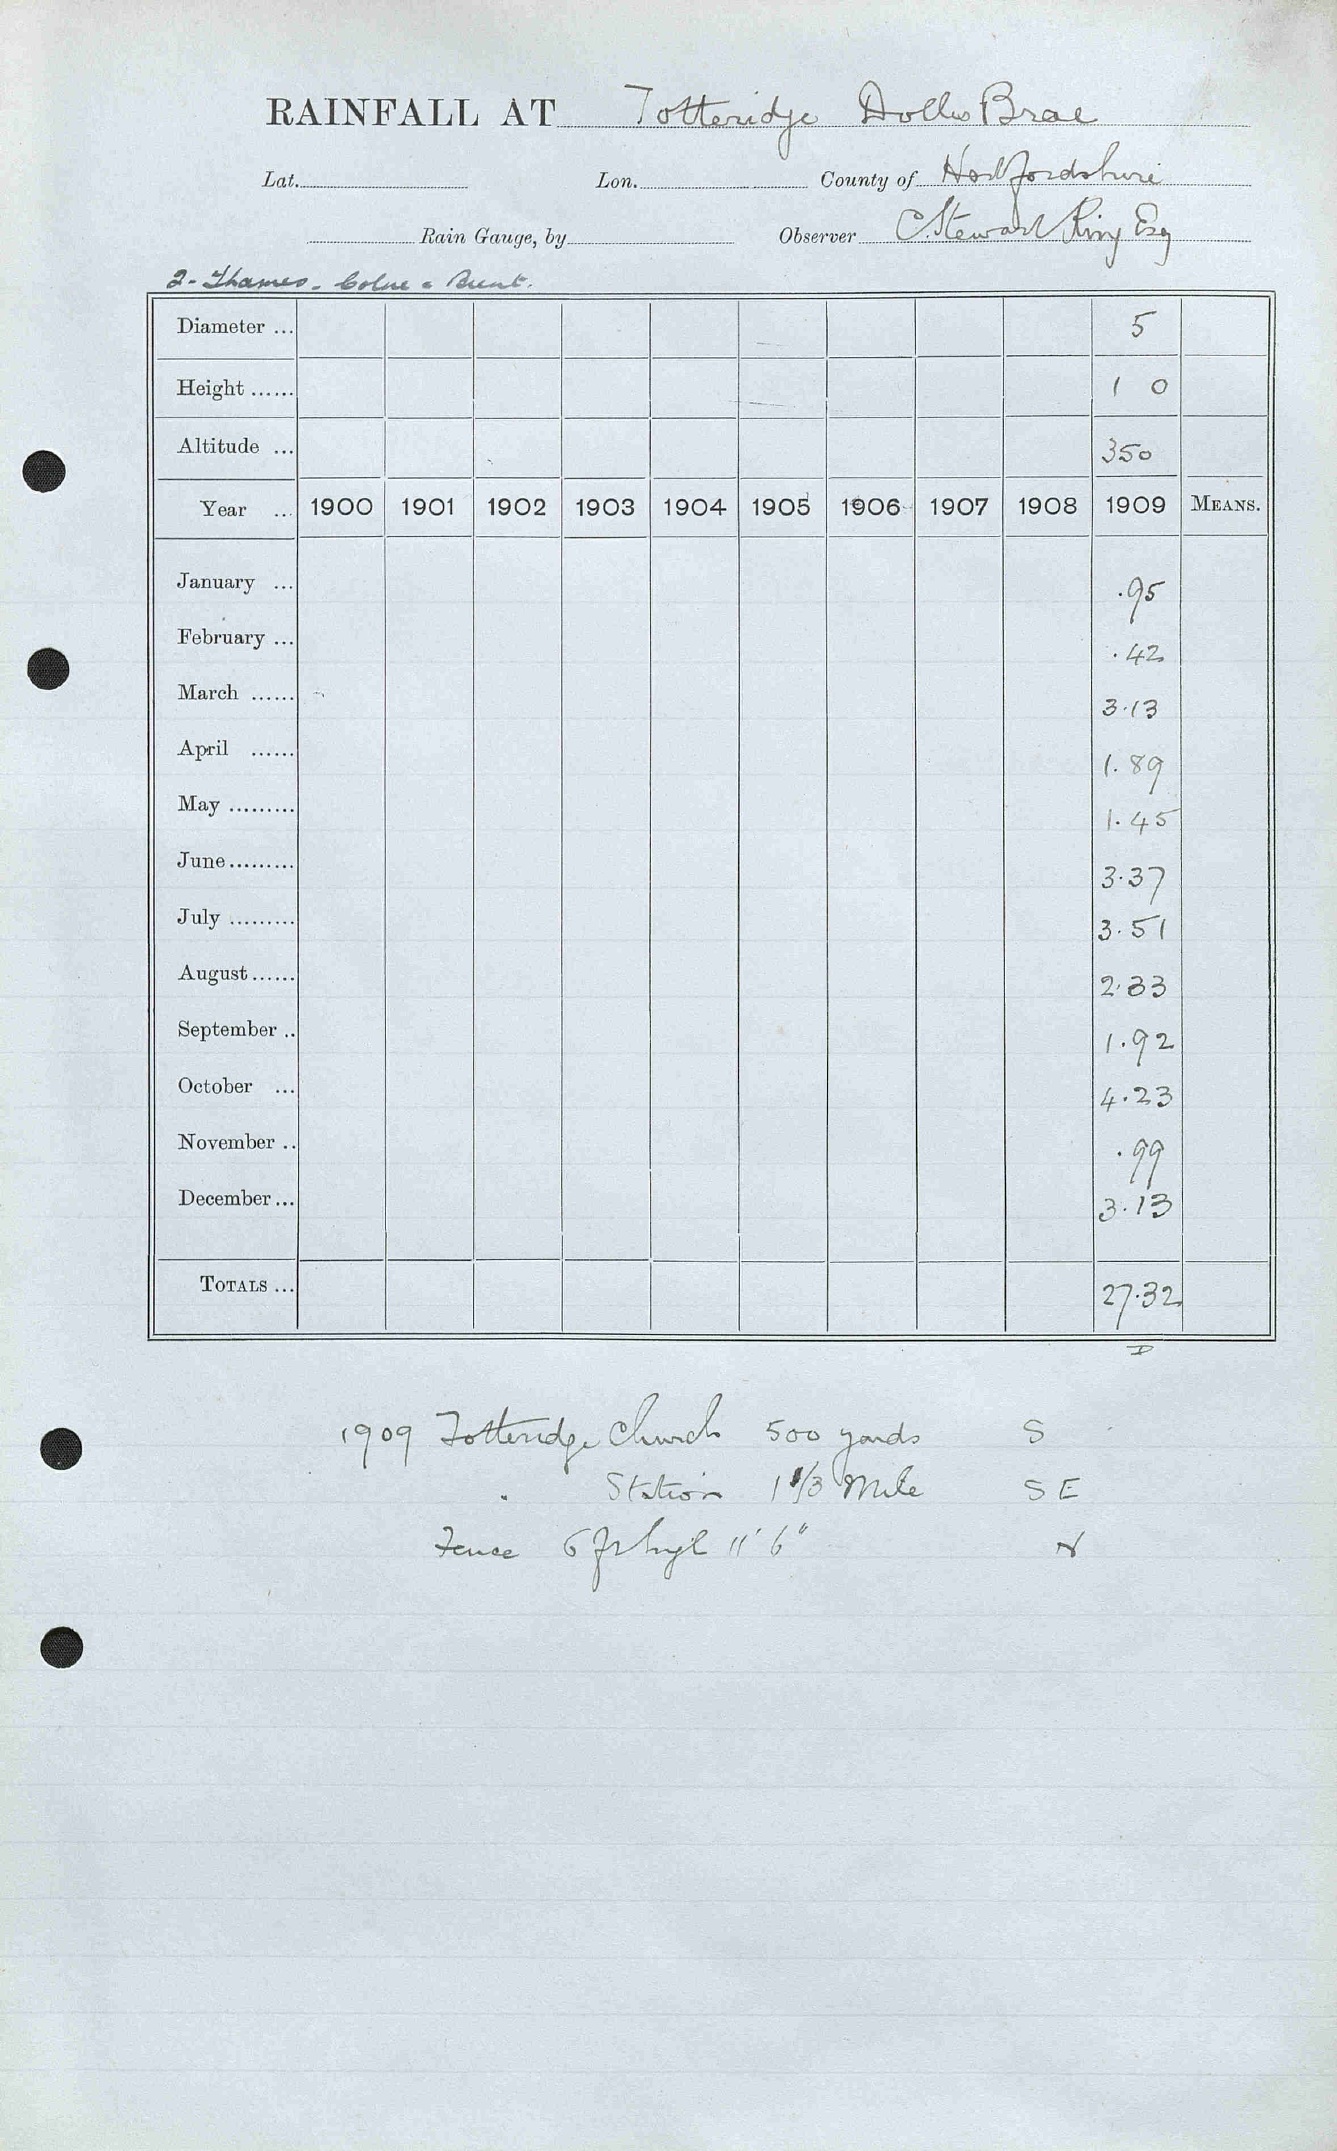 RAINFALL AT Totteridge Dollis Brae
Lat. Lon. County of Hertfordshire
Rain Gauge, by Observer C. Stewart King Esq
2 - Thames - Colne & Brent.
Diameter ... 5
Height ...... 1 0
Altitude ... 350
Year ... 1900 1901 1902 1903 1904 1905 1906 1907 1908 1909 MEANS.
January ... .95
February ... .42
March ...... 3.13
April ...... 1.89
May ......... 1.45
June ......... 3.37
July ......... 3.51
August ...... 2.33
September .. 1.92
October ... 4.23
November .. .99
December ... 3.13
TOTALS ... 27.32
D
1909 Totteridge Church 500 yards S
" Station 1 1/3 Mile S E
Fence 6 ft high 11' 6" N